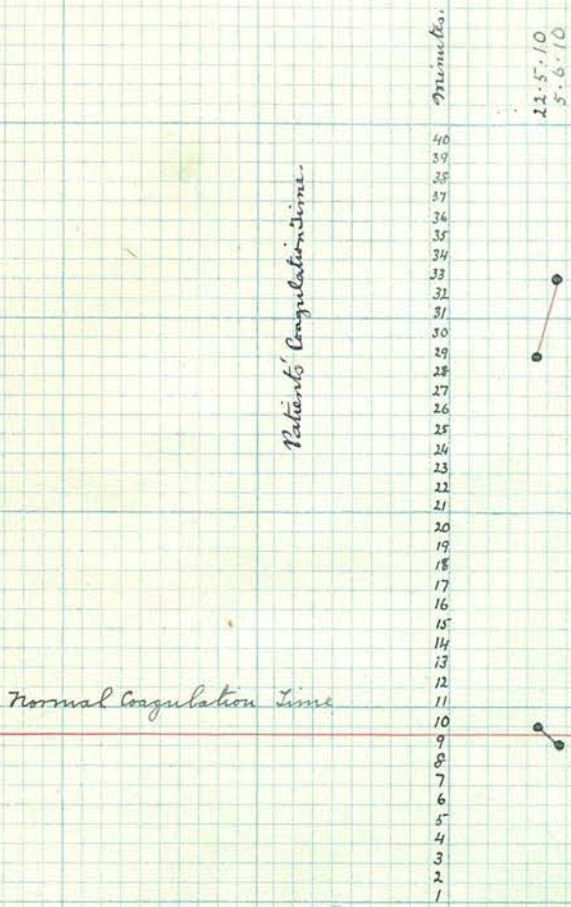 Minutes.
22.5.10
5.6.10
40
39
38
37
36
35
34
33
32
31
30
29
28
27
26
25
24
23
22
21
20
19
18
17
16
15
14
13
12
11
10
9
8
7
6
5
4
3
2
1
Patients' Coagulation Time.
Normal Coagulation Time